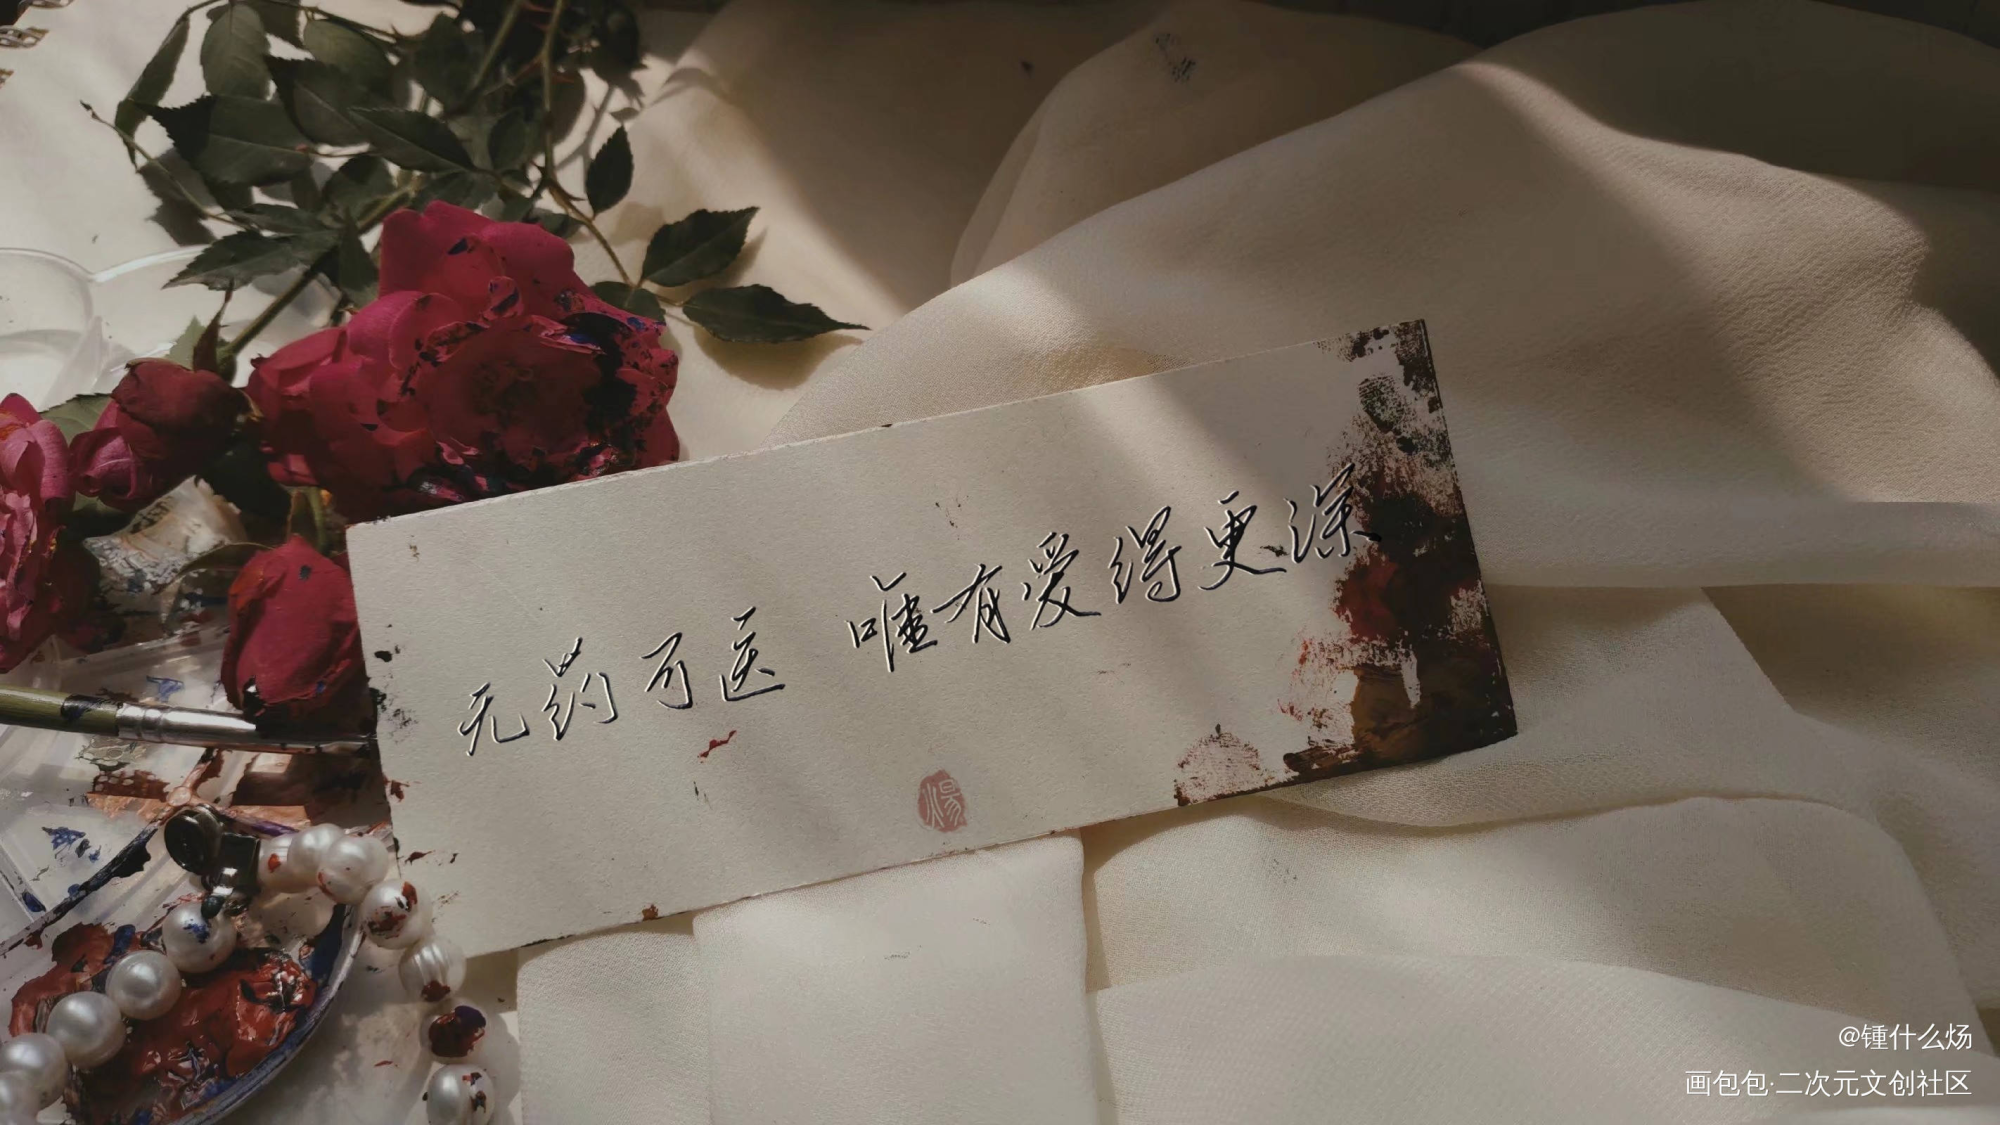 无药可医 唯有爱得更深
炀
@锺什么炀
画包包·二次元文创社区